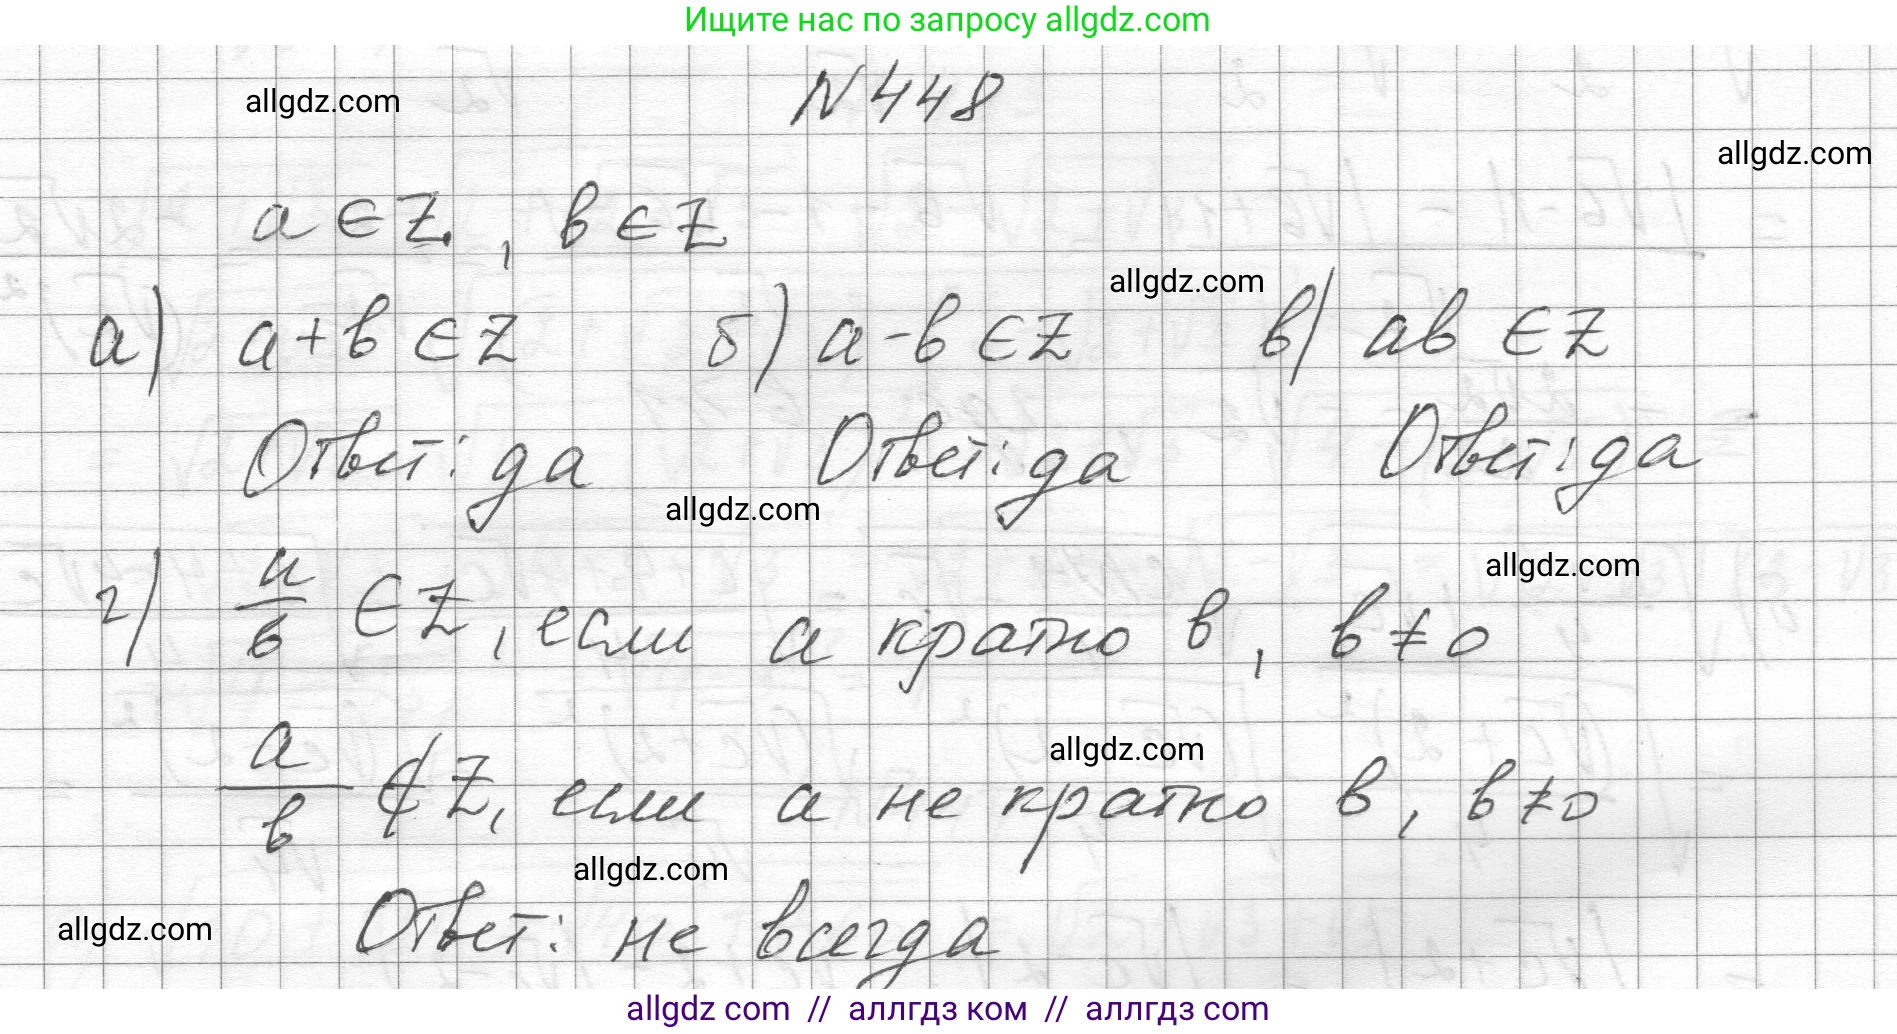 Ищите нас по запросу allgdz.com
allgdz.com
N 448
allgdz.com
a ∈ Z, b ∈ Z
allgdz.com
а) a + b ∈ Z б) a - b ∈ Z в) ab ∈ Z
Ответ: да Ответ: да Ответ: да
allgdz.com
allgdz.com
г) a/b ∈ Z, если a кратно b, b ≠ 0
allgdz.com
a/b ∉ Z, если a не кратно b, b ≠ 0
allgdz.com
allgdz.com
Ответ: не всегда
allgdz com // аллгдз ком // аллгдз com